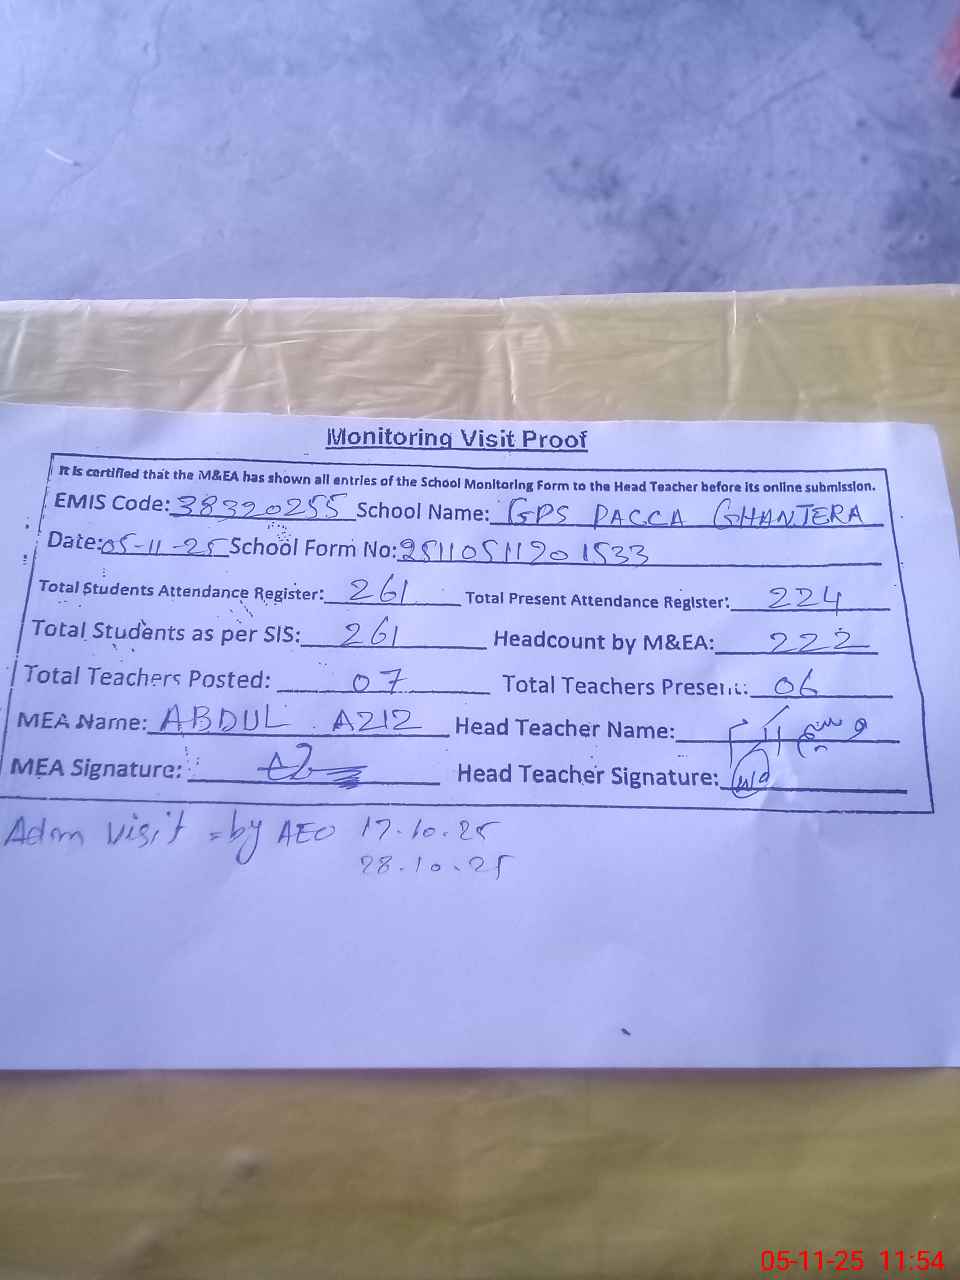 Monitoring Visit Proof
It is certified that the M&EA has shown all entries of the School Monitoring Form to the Head Teacher before its online submission.
EMIS Code: 38320255 School Name: GPS PACCA GHANJERA
Date: 05-11-25 School Form No: 2511051120 1533
Total Students Attendance Register: 261 Total Present Attendance Register: 224
Total Students as per SIS: 261 Headcount by M&EA: 222
Total Teachers Posted: 07 Total Teachers Present: 06
MEA Name: ABDUL AZIZ Head Teacher Name:
MEA Signature: Head Teacher Signature:
Adm Visit = by AEO 17.10.25
28.10.25
05-11-25 11:54